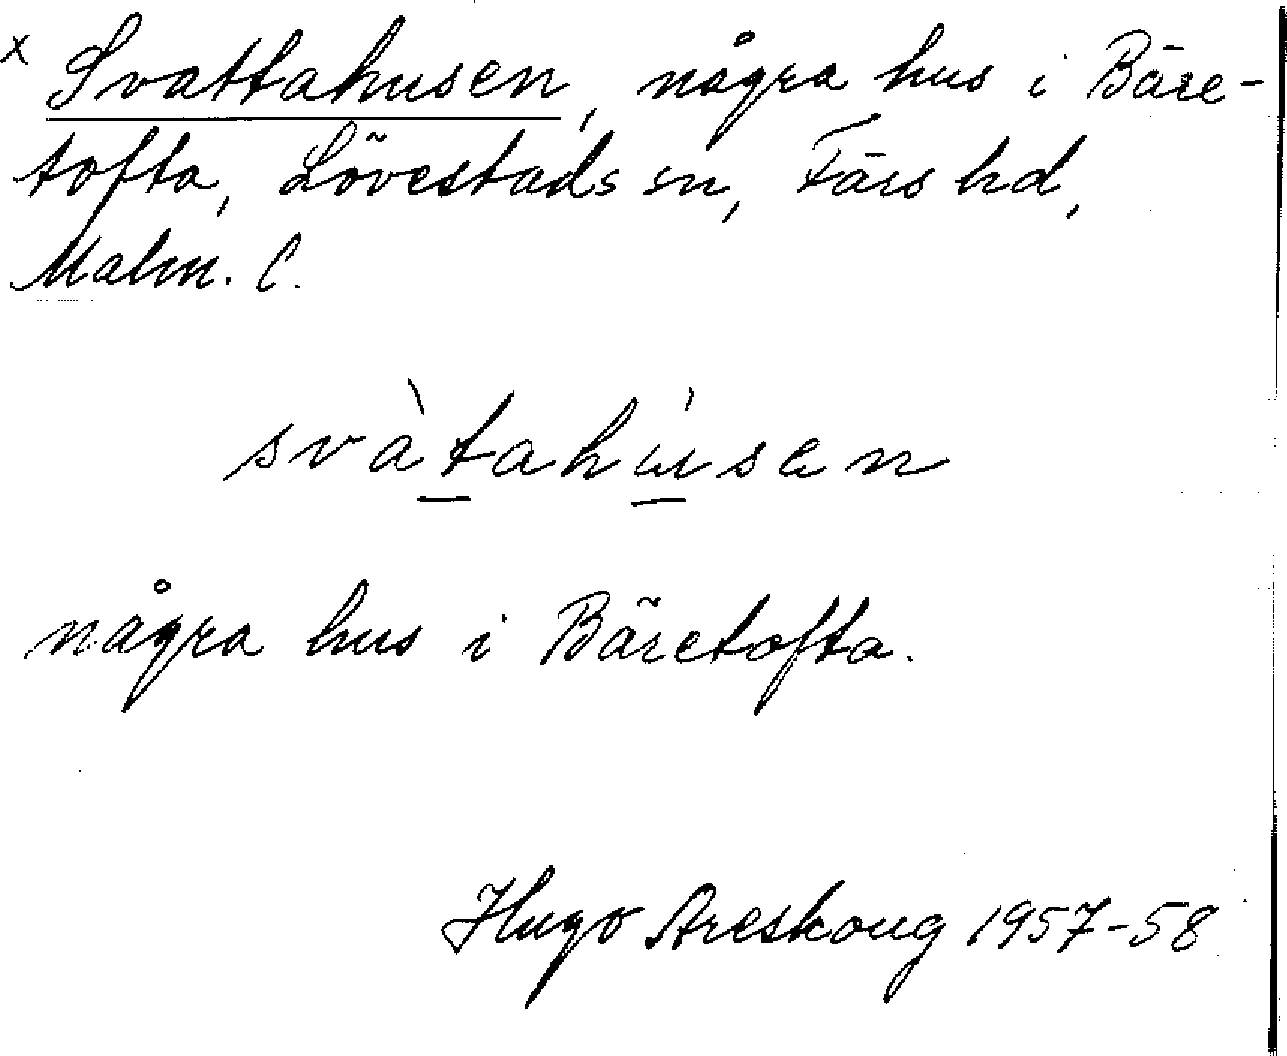 x Svattahusen, några hus i Bäre-
tofta, Lövestads sn, Färs hd,
Malm. l.
svàtahúsen
några hus i Bäretofta.
Hugo Areskoug 1957-58